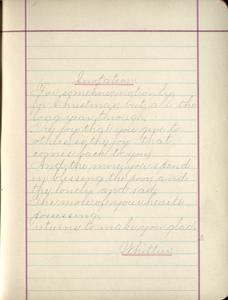 Quotation
For somehow, not only
for Christmas but all the
long year through,
The joy that you give to
others is the joy that
comes back to you.
And the more you spend
in blessing the poor and
the lonely and sad,
The more of your heart's
possessing
returns to make you glad.
Whittier